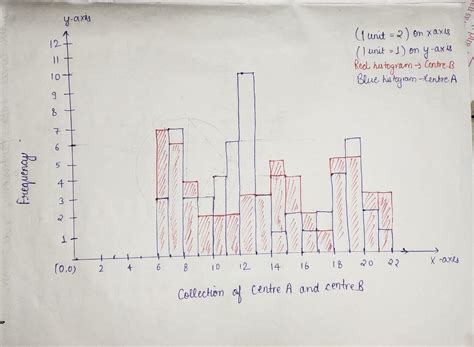 y-axis
(1 unit = 2) on x axis
(1 unit = 1) on y-axis
Red histogram → Centre B
Blue histogram → Centre A
Frequency
12
11
10
9
8
7
6
5
4
3
2
1
(0,0) 2 4 6 8 10 12 14 16 18 20 22 X-axis
Collection of Centre A and centre B